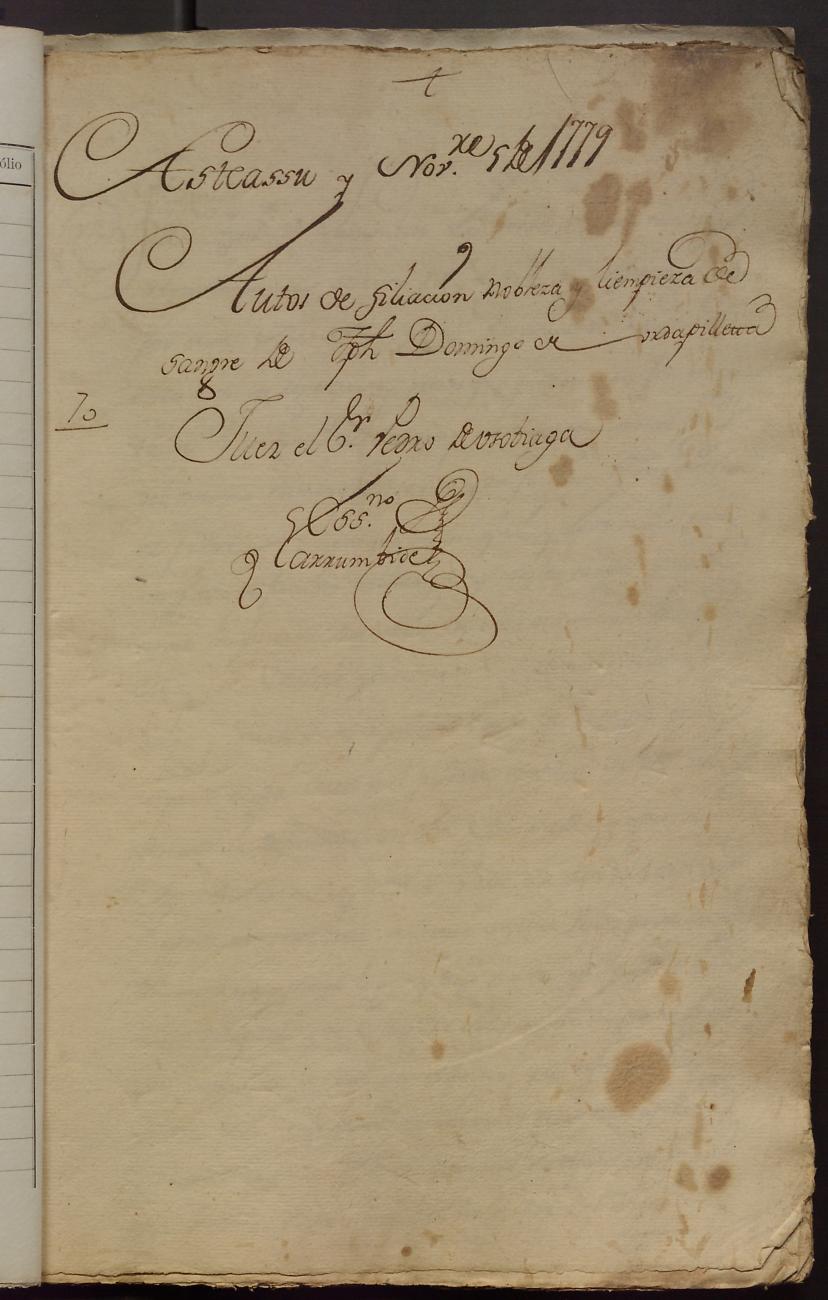 ólio
+
Asteassu y Nov.re 5 de 1779
Autos de filiacion nobleza y liempieza de
sangre de Jph Domingo de ordapilletta
70
Juez el Sr. Pedro de Urobiaga
Ess.no
Larrumbide